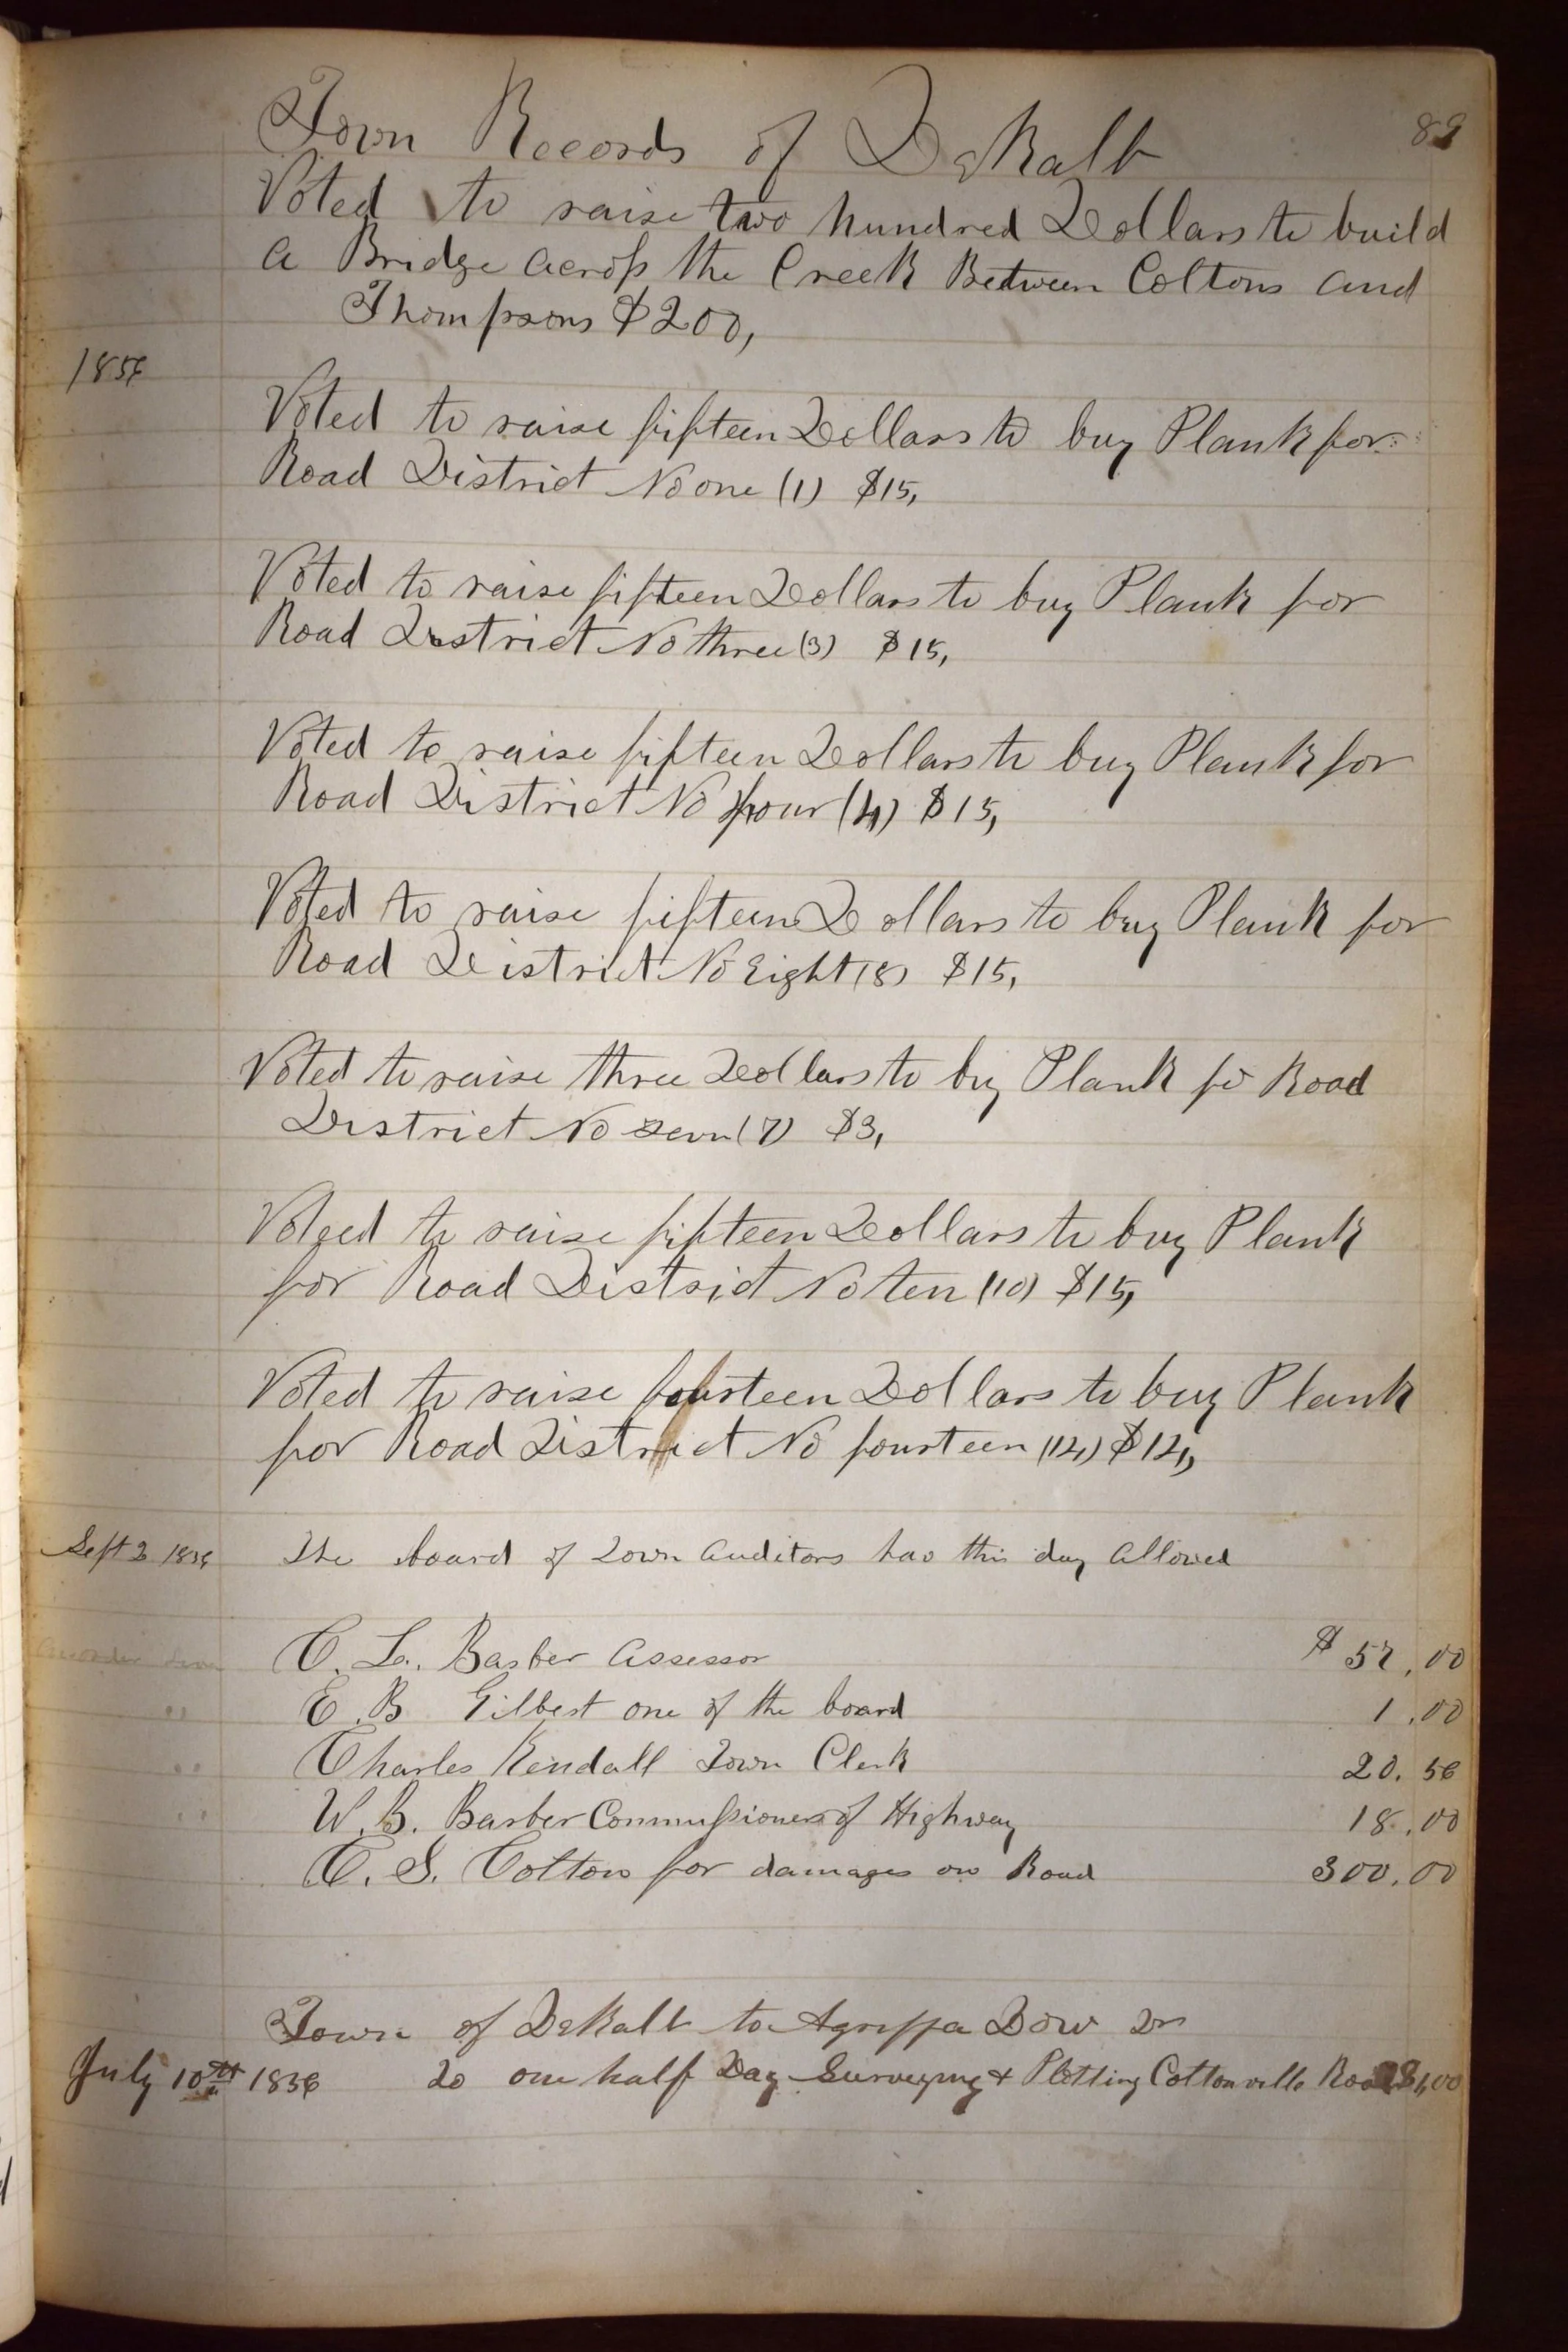 Town Records of DeKalb 89
Voted to raise two hundred Dollars to build
a Bridge across the Creek Between Coltons and
Thompsons $200,
1856
Voted to raise fifteen Dollars to buy Plank for
Road District No one (1) $15,
Voted to raise fifteen Dollars to buy Plank for
Road District No three (3) $15,
Voted to raise fifteen Dollars to buy Plank for
Road District No four (4) $15,
Voted to raise fifteen Dollars to buy Plank for
Road District No Eight (8) $15,
Voted to raise three Dollars to buy Plank for Road
District No sevn (7) $3,
Voteed to raise fifteen Dollars to buy Plank
for Road District No ten (10) $15,
Voted to raise fourteen Dollars to buy Plank
for Road District No fourteen (14) $14,
Sept 3 1856 The board of Town Auditors has this day allowed
C. L. Barber Assessor $ 57.00
" E. B Gilbert one of the board 1.00
" Charles Kendall Town Clerk 20.56
" W. B. Barber Commissioner of Highway 18.00
C. S. Colton for damages on Road 300.00
Town of DeKalb to Agrippa Dow Dr
July 10th 1856 To one half Day Surveying & Plotting Coltonville Road